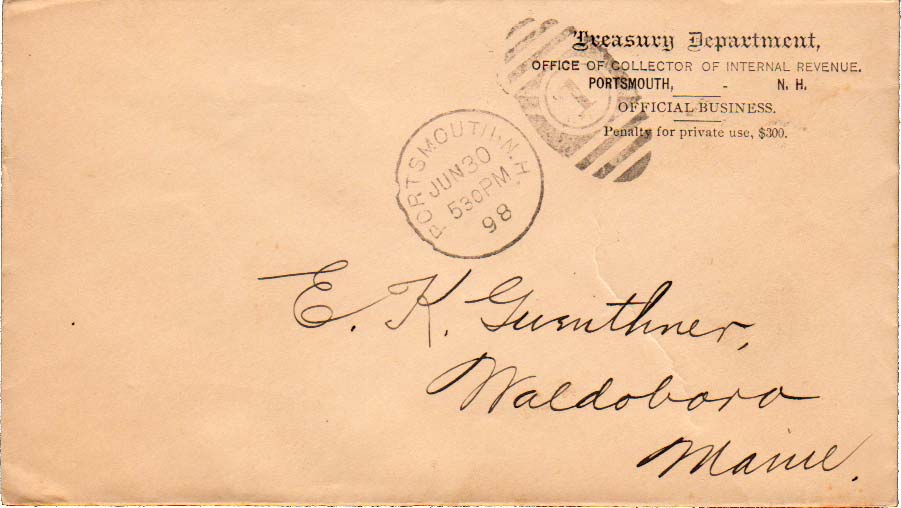 Treasury Department,
OFFICE OF COLLECTOR OF INTERNAL REVENUE.
PORTSMOUTH, - N. H.
OFFICIAL BUSINESS.
Penalty for private use, $300.
1
PORTSMOUTH, N.H.
JUN 30
530PM
98
E. K. Guenthner,
Waldoboro
Maine.